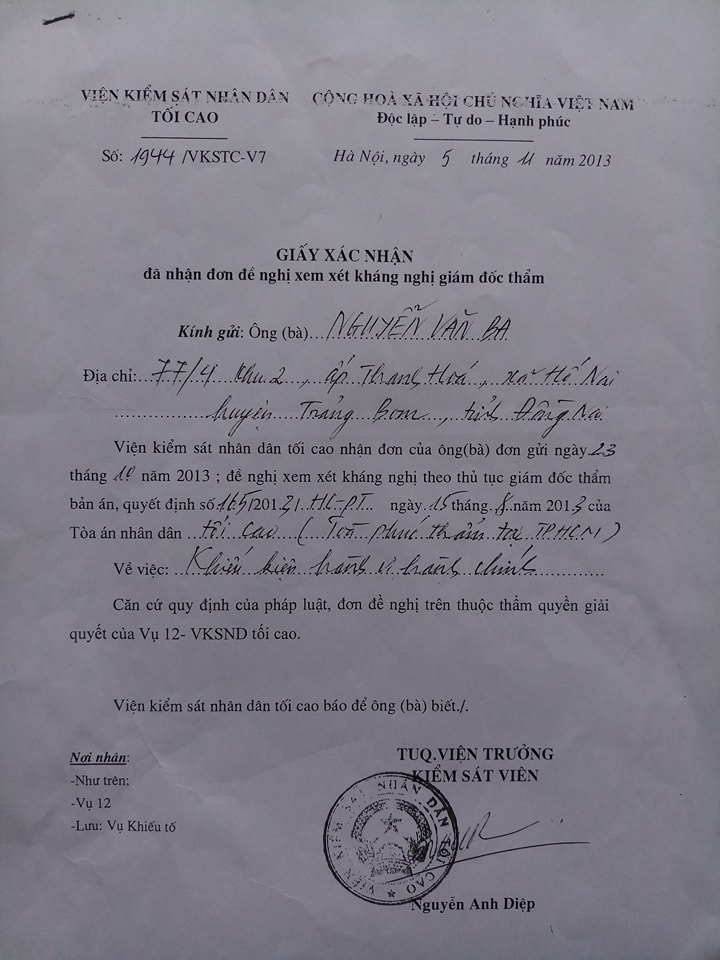 VIỆN KIỂM SÁT NHÂN DÂN
TỐI CAO
Số: 1944/VKSTC-V7
CỘNG HOÀ XÃ HỘI CHỦ NGHĨA VIỆT NAM
Độc lập – Tự do – Hạnh phúc
Hà Nội, ngày 5 tháng 11 năm 2013
GIẤY XÁC NHẬN
đã nhận đơn đề nghị xem xét kháng nghị giám đốc thẩm
Kính gửi: Ông (bà)...NGUYỄN VĂN BA
Địa chỉ:...77/4 khu 2, ấp Thanh Hoá, xã Hố Nai
huyện Trảng Bom, tỉnh Đồng Nai
Viện kiểm sát nhân dân tối cao nhận đơn của ông(bà) đơn gửi ngày 23
tháng 10 năm 2013 ; đề nghị xem xét kháng nghị theo thủ tục giám đốc thẩm
bản án, quyết định số 165/2013/HC-PT ngày 15 tháng 8 năm 2013 của
Tòa án nhân dân tối cao (Toà phúc thẩm tại TPHCM)
Về việc: Khiếu kiện hành vi hành chính
Căn cứ quy định của pháp luật, đơn đề nghị trên thuộc thẩm quyền giải
quyết của Vụ 12- VKSND tối cao.
Viện kiểm sát nhân dân tối cao báo để ông (bà) biết./.
Nơi nhận:
-Như trên;
-Vụ 12
-Lưu: Vụ Khiếu tố
TUQ.VIỆN TRƯỞNG
KIỂM SÁT VIÊN
VIỆN KIỂM SÁT NHÂN DÂN TỐI CAO
Nguyễn Anh Diệp